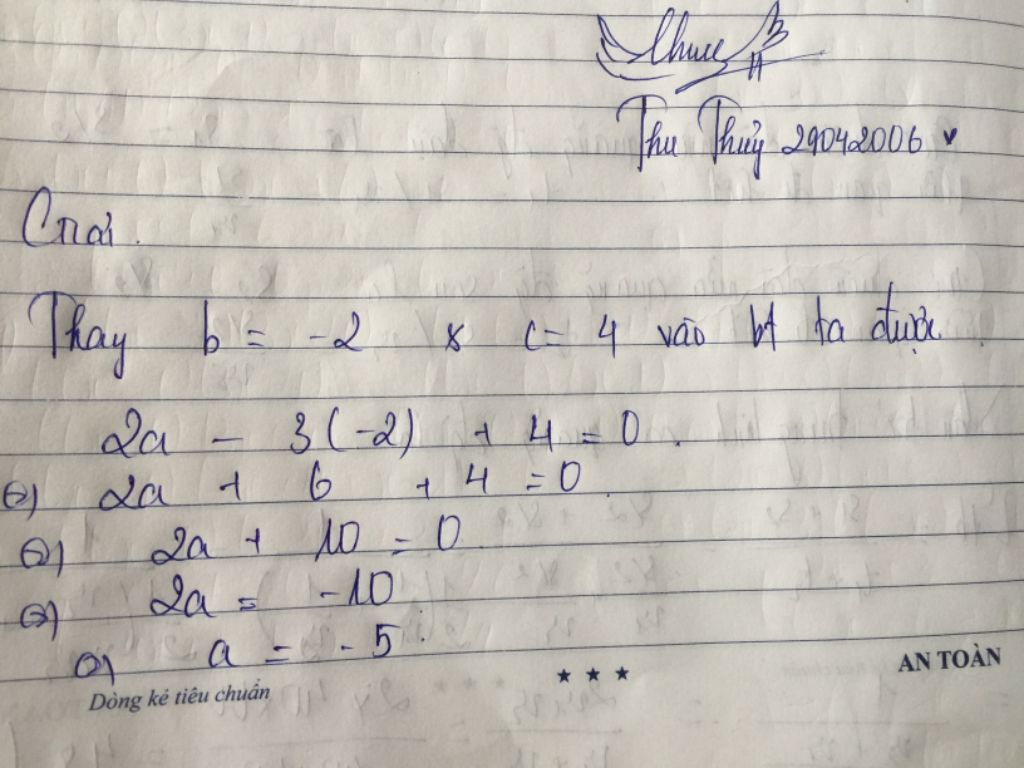 Thu Thủy 29042006
Giải.
Thay b = -2 & c = 4 vào bt ta được.
2a - 3(-2) + 4 = 0.
⇔ 2a + 6 + 4 = 0.
⇔ 2a + 10 = 0
⇔ 2a = -10
⇔ a = -5.
Dòng kẻ tiêu chuẩn ★ ★ ★ AN TOÀN